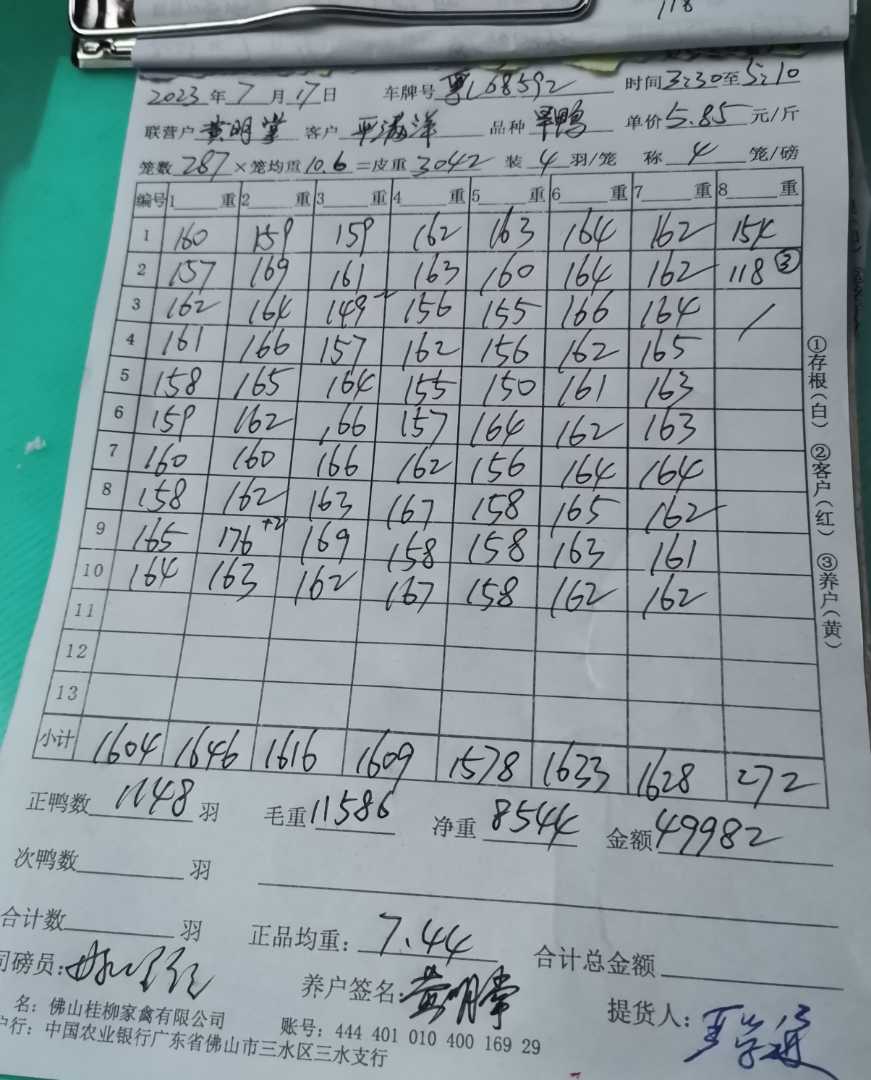 118
2023年7月17日 车牌号 粤L68592 时间3:30至5:10
联营户 黄明堂 客户 品种 旱鸭 单价5.85元/斤
笼数287×笼均重10.6=皮重3042 装4羽/笼 称4笼/磅
编号 1 重 2 重 3 重 4 重 5 重 6 重 7 重 8 重
1 160 159 159 162 163 164 162 154
2 157 169 161 163 160 164 162 118③
3 162 164 149 156 155 166 164 /
4 161 166 157 162 156 162 165
5 158 165 164 155 150 161 163
6 159 162 166 157 164 162 163
7 160 160 166 162 156 164 164
8 158 162 163 167 158 165 162
9 165 176+2 169 158 158 163 161
10 164 163 162 167 158 162 162
11
12
13
小计 1604 1646 1616 1609 1578 1633 1628 272
①存根(白) ②客户(红) ③养户(黄)
正鸭数1148羽 毛重11586 净重8544 金额49982
次鸭数 羽
合计数 羽 正品均重:7.44 合计总金额
司磅员: 养户签名:黄明堂 提货人:
名:佛山桂柳家禽有限公司 账号:444 401 010 400 169 29
户行:中国农业银行广东省佛山市三水区三水支行